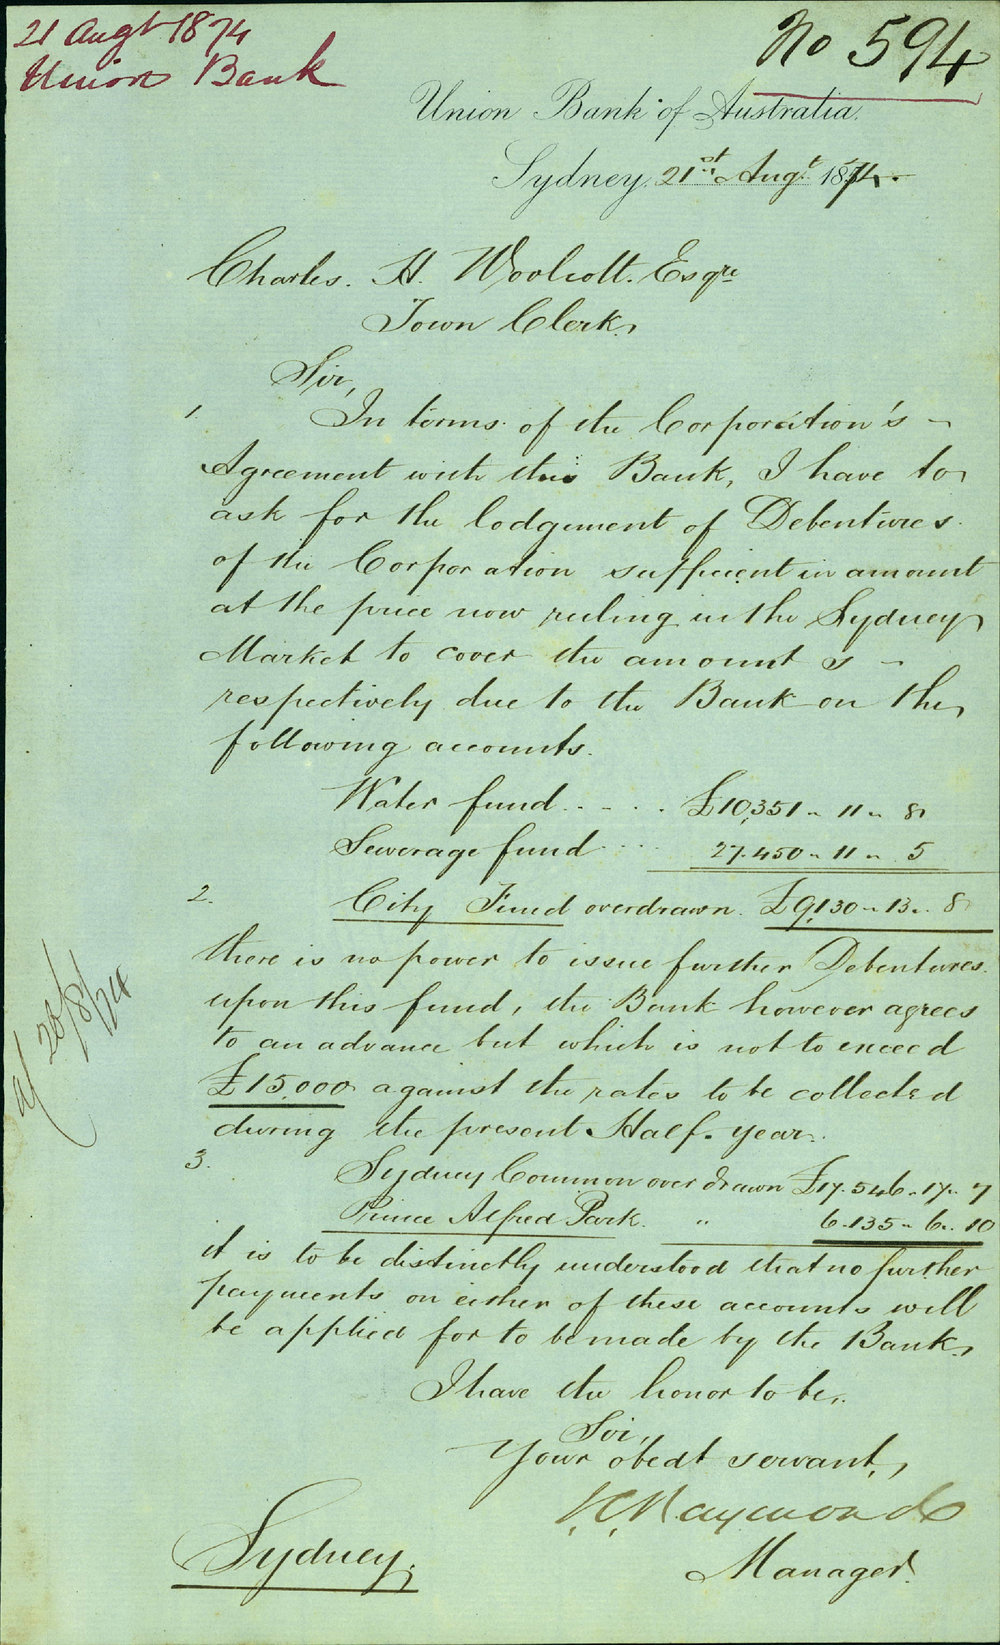 21 Augt 1874
Union Bank
No 594
Union Bank of Australia.
Sydney, 21st Augt. 1874.
Charles. H. Woolcott. Esqre
Town Clerk,
Sir,
1. In terms of the Corporation's
Agreement with this Bank, I have to
ask for the lodgment of Debentures
of the Corporation sufficient in amount
at the price now ruling in the Sydney
Market to cover the amounts
respectively due to the Bank on the
following accounts.
Water fund . - - . £10,351 " 11 " 8
Sewerage fund .... 27.450 " 11 " 5
2. City Fund overdrawn. £9,130 " 13 " 8
there is no power to issue further Debentures
upon this fund, the Bank however agrees
to an advance but which is not to exceed
£15,000 against the rates to be collected
during the present Half-year.
20/8/74
3. Sydney Common overdrawn £17.546 " 17 " 7
Prince Alfred Park. " 6.135 " 6 " 10
it is to be distinctly understood that no further
payments on either of these accounts will
be applied for to be made by the Bank,
I have the honor to be,
Sir,
Your obedt servant,
Raymond
Manager.
Sydney.